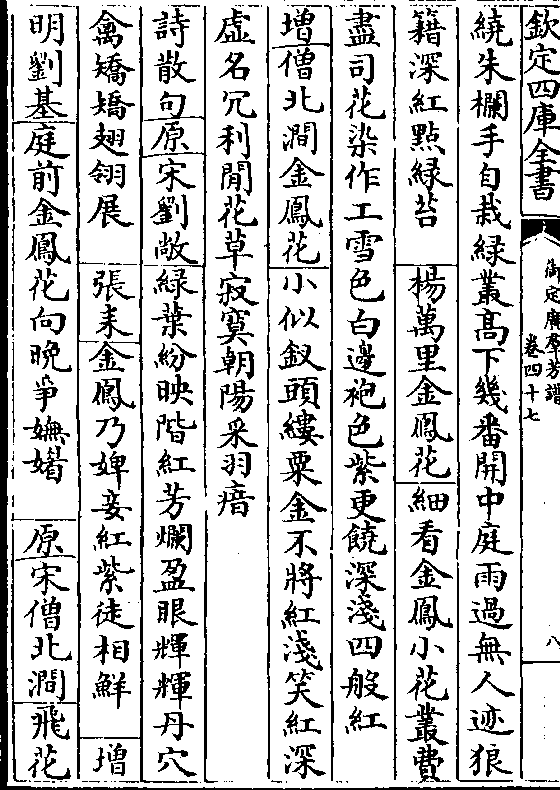 欽定四庫全書
御定廣羣芳譜
卷四十七
八
繞朱欄手自栽綠叢高下幾番開中庭雨過無人迹狼
籍深紅點緑苔　楊萬里金鳳花細看金鳳小花叢費
盡司花染作工雪色白邊袍色紫更饒深淺四般紅
增僧北澗金鳳花小似釵頭縷粟金不將紅淺笑紅深
虛名冗利閒花草寂寞朝陽采羽瘖
詩散句原宋劉敞綠葉紛映階紅芳爛盈眼輝輝丹穴
禽矯矯翅翎展　張耒金鳳乃婢妾紅紫徒相鮮　增
明劉基庭前金鳳花向晚爭嫵媚　原宋僧北澗飛花